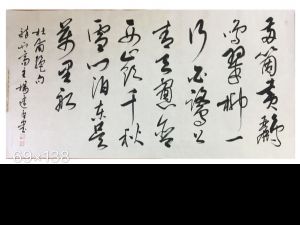 两箇黄鹂
鸣翠柳一
行白鹭上
青天窗含
西岭千秋
雪门泊东吴
万里船
杜甫绝句
69×138